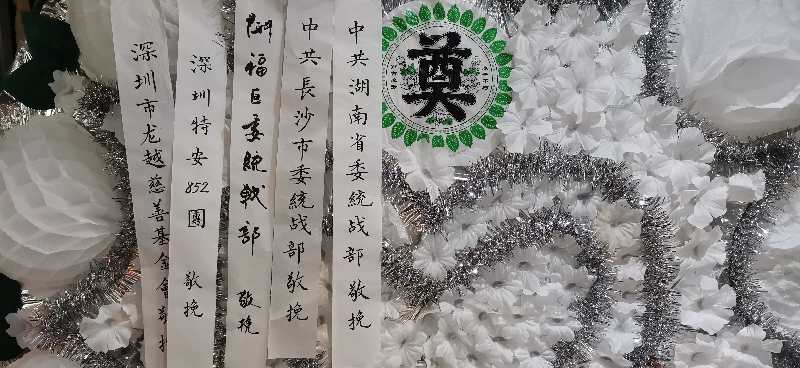 奠
中共湖南省委統战部敬挽
中共長沙市委統战部敬挽
福区委統戰部 敬挽
深圳特安852團 敬挽
深圳市龙越慈善基金會敬